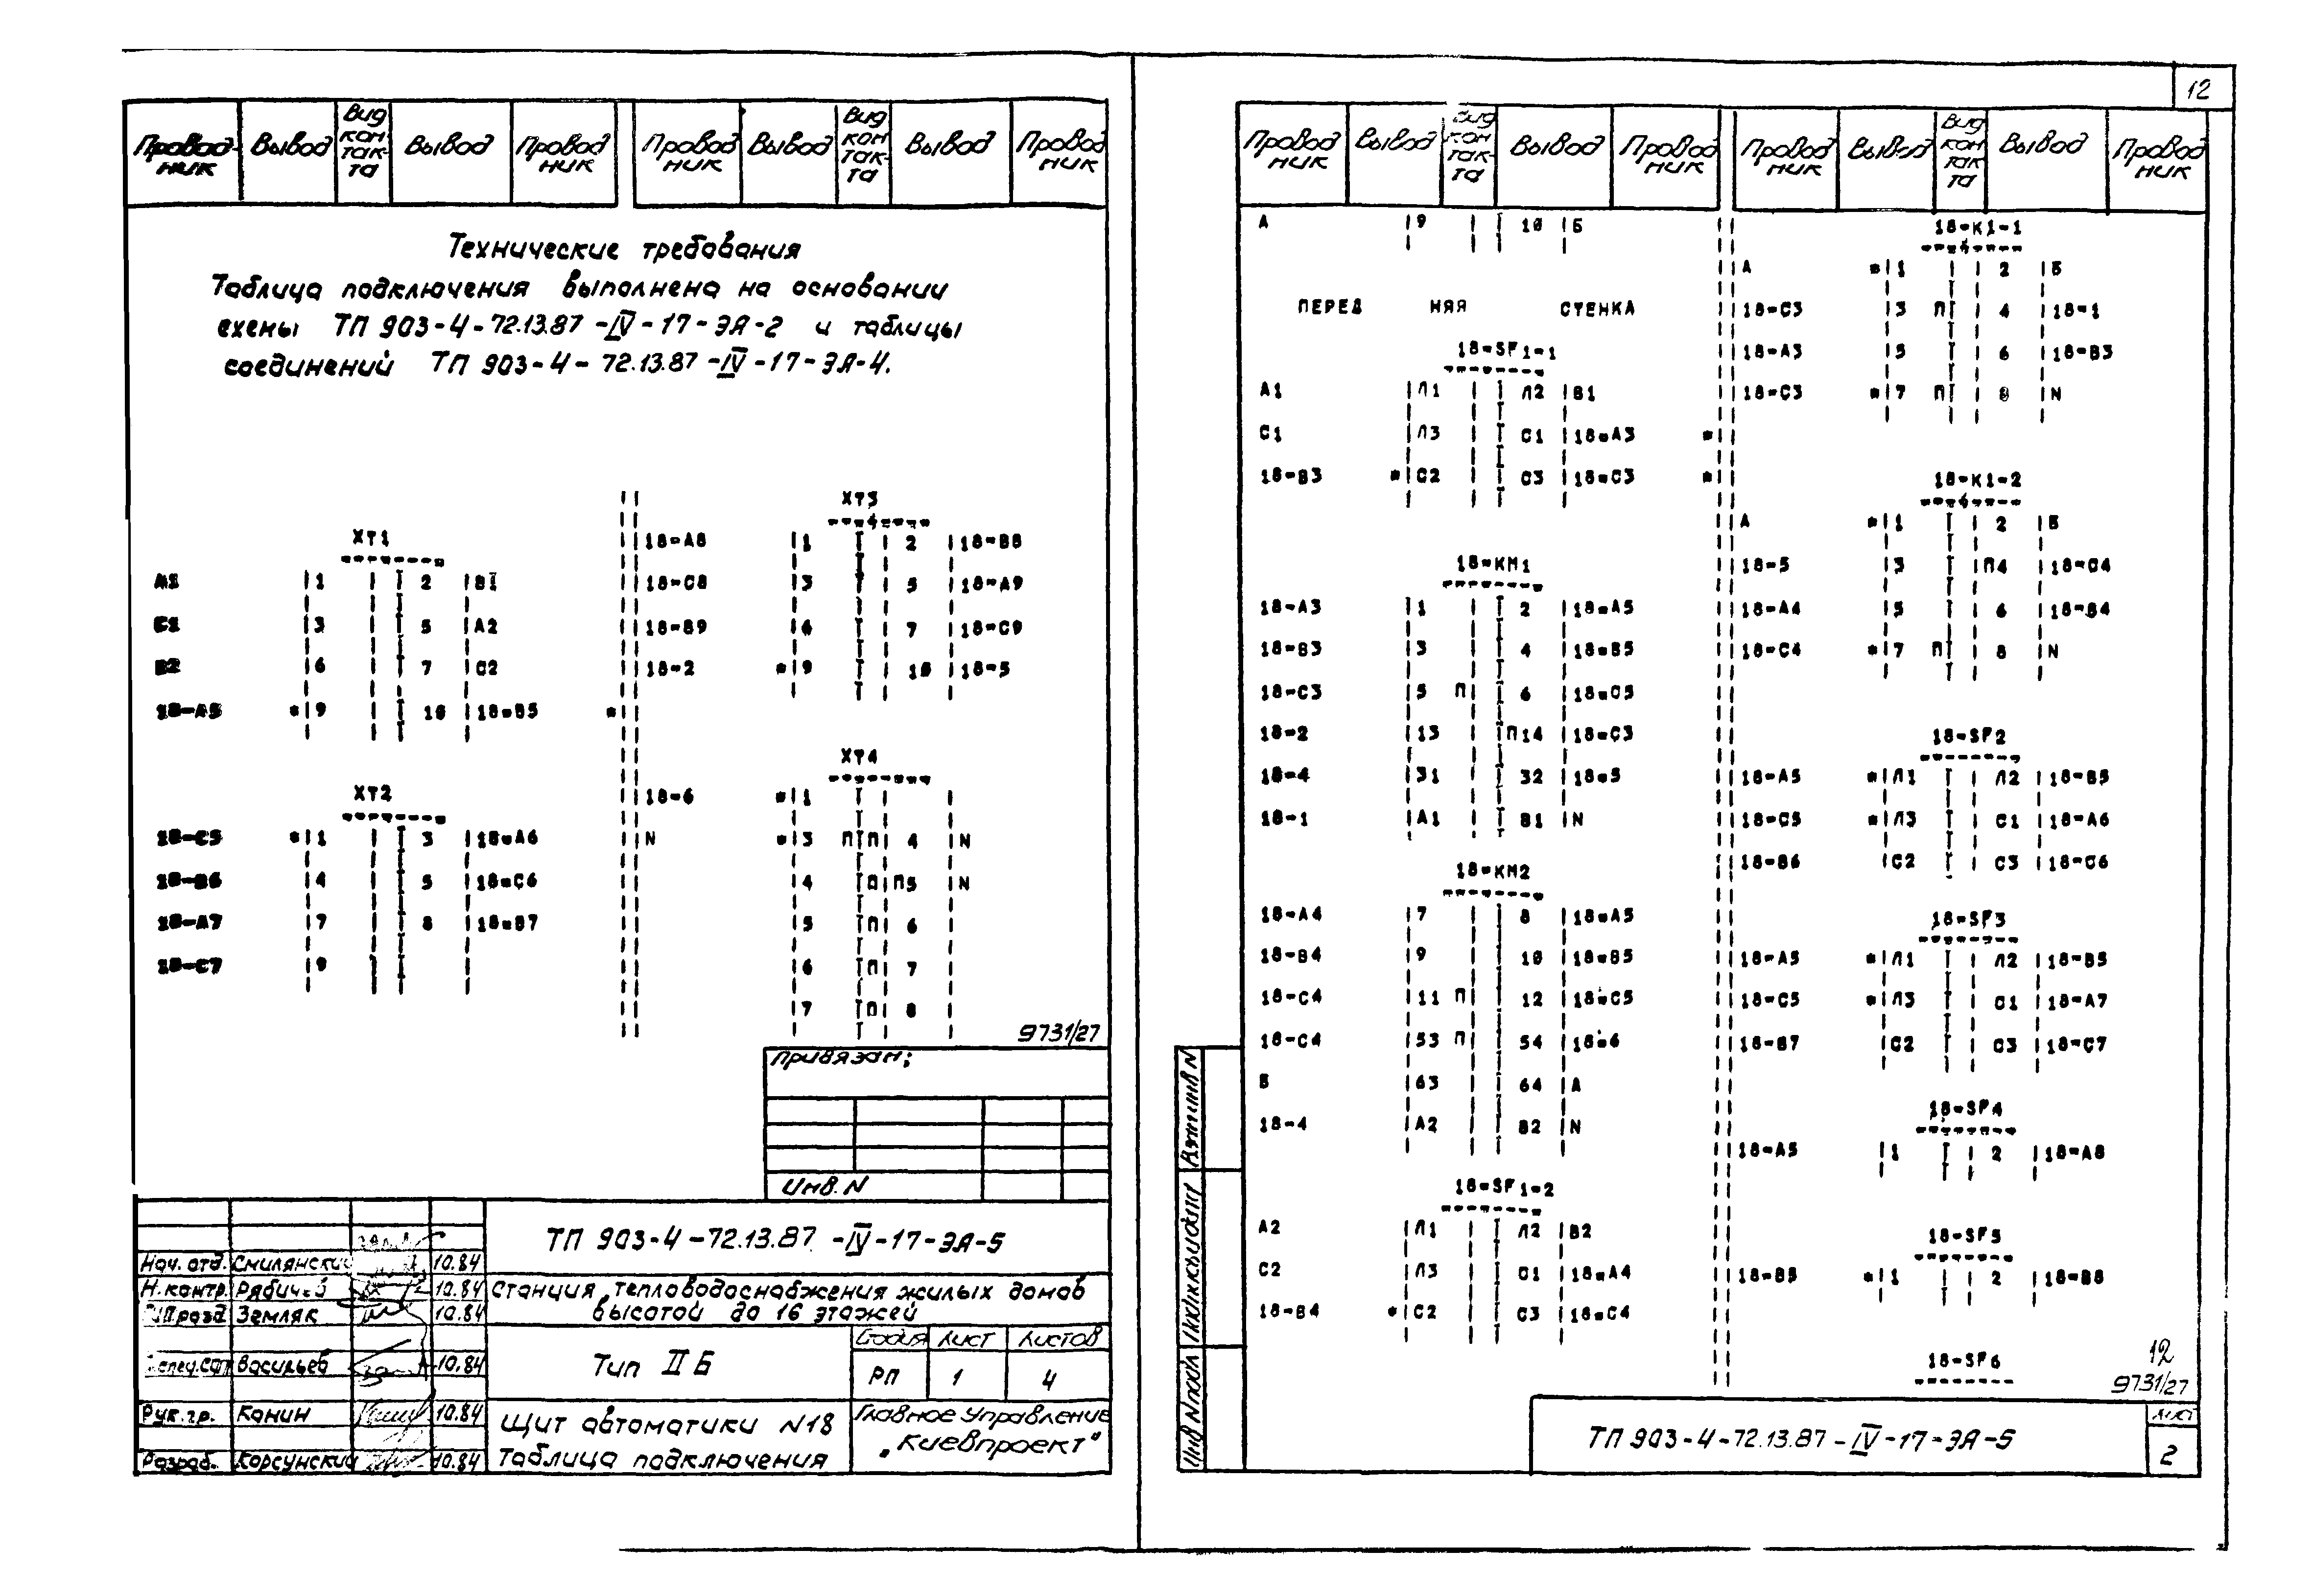 12
Провод-ник Вывод Вид кон-так-та Вывод Провод ник Провод ник Вывод Вид кон так-та Вывод Провод ник
Технические требования
Таблица подключения выполнена на основании
схемы ТП 903-4-72.13.87-IV-17-ЭА-2 и таблицы
соединений ТП 903-4-72.13.87-IV-17-ЭА-4.
ХТ1
А1 1 2 В1
С1 3 5 А2
В2 6 7 С2
18-А5 *9 10 18-В5 *
ХТ2
18-С5 *1 3 18-А6
18-В6 4 5 18-С6
18-А7 7 8 18-В7
18-С7 9
ХТ3
18-А8 1 2 18-В8
18-С8 3 5 18-А9
18-В9 6 7 18-С9
18-2 *9 10 18-5
ХТ4
18-6 *1
N *3 П П 4 N
4 П П5 N
5 П 6
6 П 7
7 П 8
9731/27
Привязан:
Инв. N
ТП 903-4-72.13.87-IV-17-ЭА-5
Нач. отд. Смилянский 10.84
Н.контр. Рябич 10.84
Земляк 10.84
Васильев 10.84
Рук. гр. Канин 10.84
Разраб. Корсунский 10.84
Станция тепловодоснабжения жилых домов
высотой до 16 этажей
Тип II Б
Стадия Лист Листов
РП 1 4
Щит автоматики N18
Таблица подключения
Главное Управление
„Киевпроект"
Провод ник Вывод Вид кон так-та Вывод Провод ник Провод ник Вывод Вид кон так та Вывод Провод ник
А 9 10 Б
ПЕРЕД НЯЯ СТЕНКА
18-SF1-1
А1 Л1 Л2 В1
С1 Л3 С1 18-А3 *
18-В3 *С2 С3 18-С3 *
18-КМ1
18-А3 1 2 18-А5
18-В3 3 4 18-В5
18-С3 5 П 6 18-С5
18-2 13 П14 18-С3
18-4 31 32 18-5
18-1 А1 В1 N
18-КМ2
18-А4 7 8 18-А5
18-В4 9 10 18-В5
18-С4 11 П 12 18-С5
18-С4 53 П 54 18-6
Б 63 64 А
18-4 А2 В2 N
18-SF1-2
А2 Л1 Л2 В2
С2 Л3 С1 18-А4
18-В4 *С2 С3 18-С4
18-К1-1
А *1 2 Б
18-С3 3 П 4 18-1
18-А3 5 6 18-В3
18-С3 *7 П 8 N
18-К1-2
А *1 2 Б
18-5 3 П4 18-С4
18-А4 5 6 18-В4
18-С4 *7 П 8 N
18-SF2
18-А5 *Л1 Л2 18-В5
18-С5 *Л3 С1 18-А6
18-В6 С2 С3 18-С6
18-SF3
18-А5 *Л1 Л2 18-В5
18-С5 *Л3 С1 18-А7
18-В7 С2 С3 18-С7
18-SF4
18-А5 1 2 18-А8
18-SF5
18-В5 *1 2 18-В8
18-SF6
12
9731/27
ТП 903-4-72.13.87-IV-17-ЭА-5
Лист
2